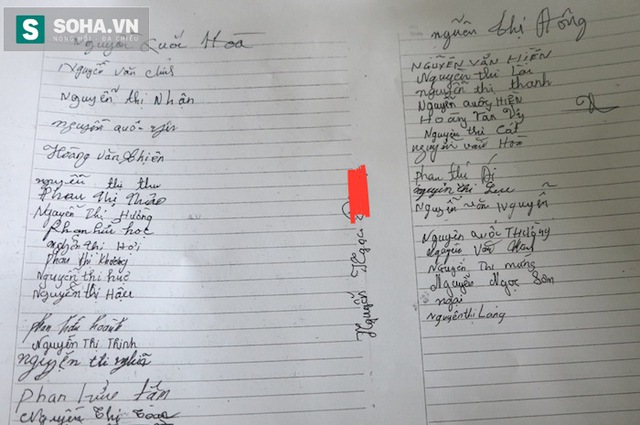 SOHA.VN
NÓNG HỔI - ĐA CHIỀU
Nguyễn Quốc Hoà
Nguyễn Văn
Nguyễn thị Nhân
nguyễn quốc
Hoàng Văn Chiện
nguyễn thị thu
Phan Thị Thảo
Nguyễn Thị Hường
Phan hữu học
nguyễn thi Hới
Phan thi Khương
Nguyễn thi huê
Nguyễn thi Hậu
phan hữu hoành
Nguyễn Thi Thịnh
nguyễn thi nghĩa
Phan Hữu tâm
Nguyễn Thị Toàn
Nguyễn Ngọc
nguyễn thị Hồng
NGUYỄN VĂN HIỀN
Nguyễn thi Tới
nguyễn thị thanh
Nguyễn quốc HIỀN
Hoàng Văn
Nguyễn thi Cát
nguyễn văn Hoà
phan thi
nguyễn thi Lựu
Nguyễn văn Nguyễn
Nguyễn quốc THường
Nguyễn Văn
Nguyễn Thị mừng
Nguyễn Ngọc Sơn
ngại
Nguyễn thi Lang